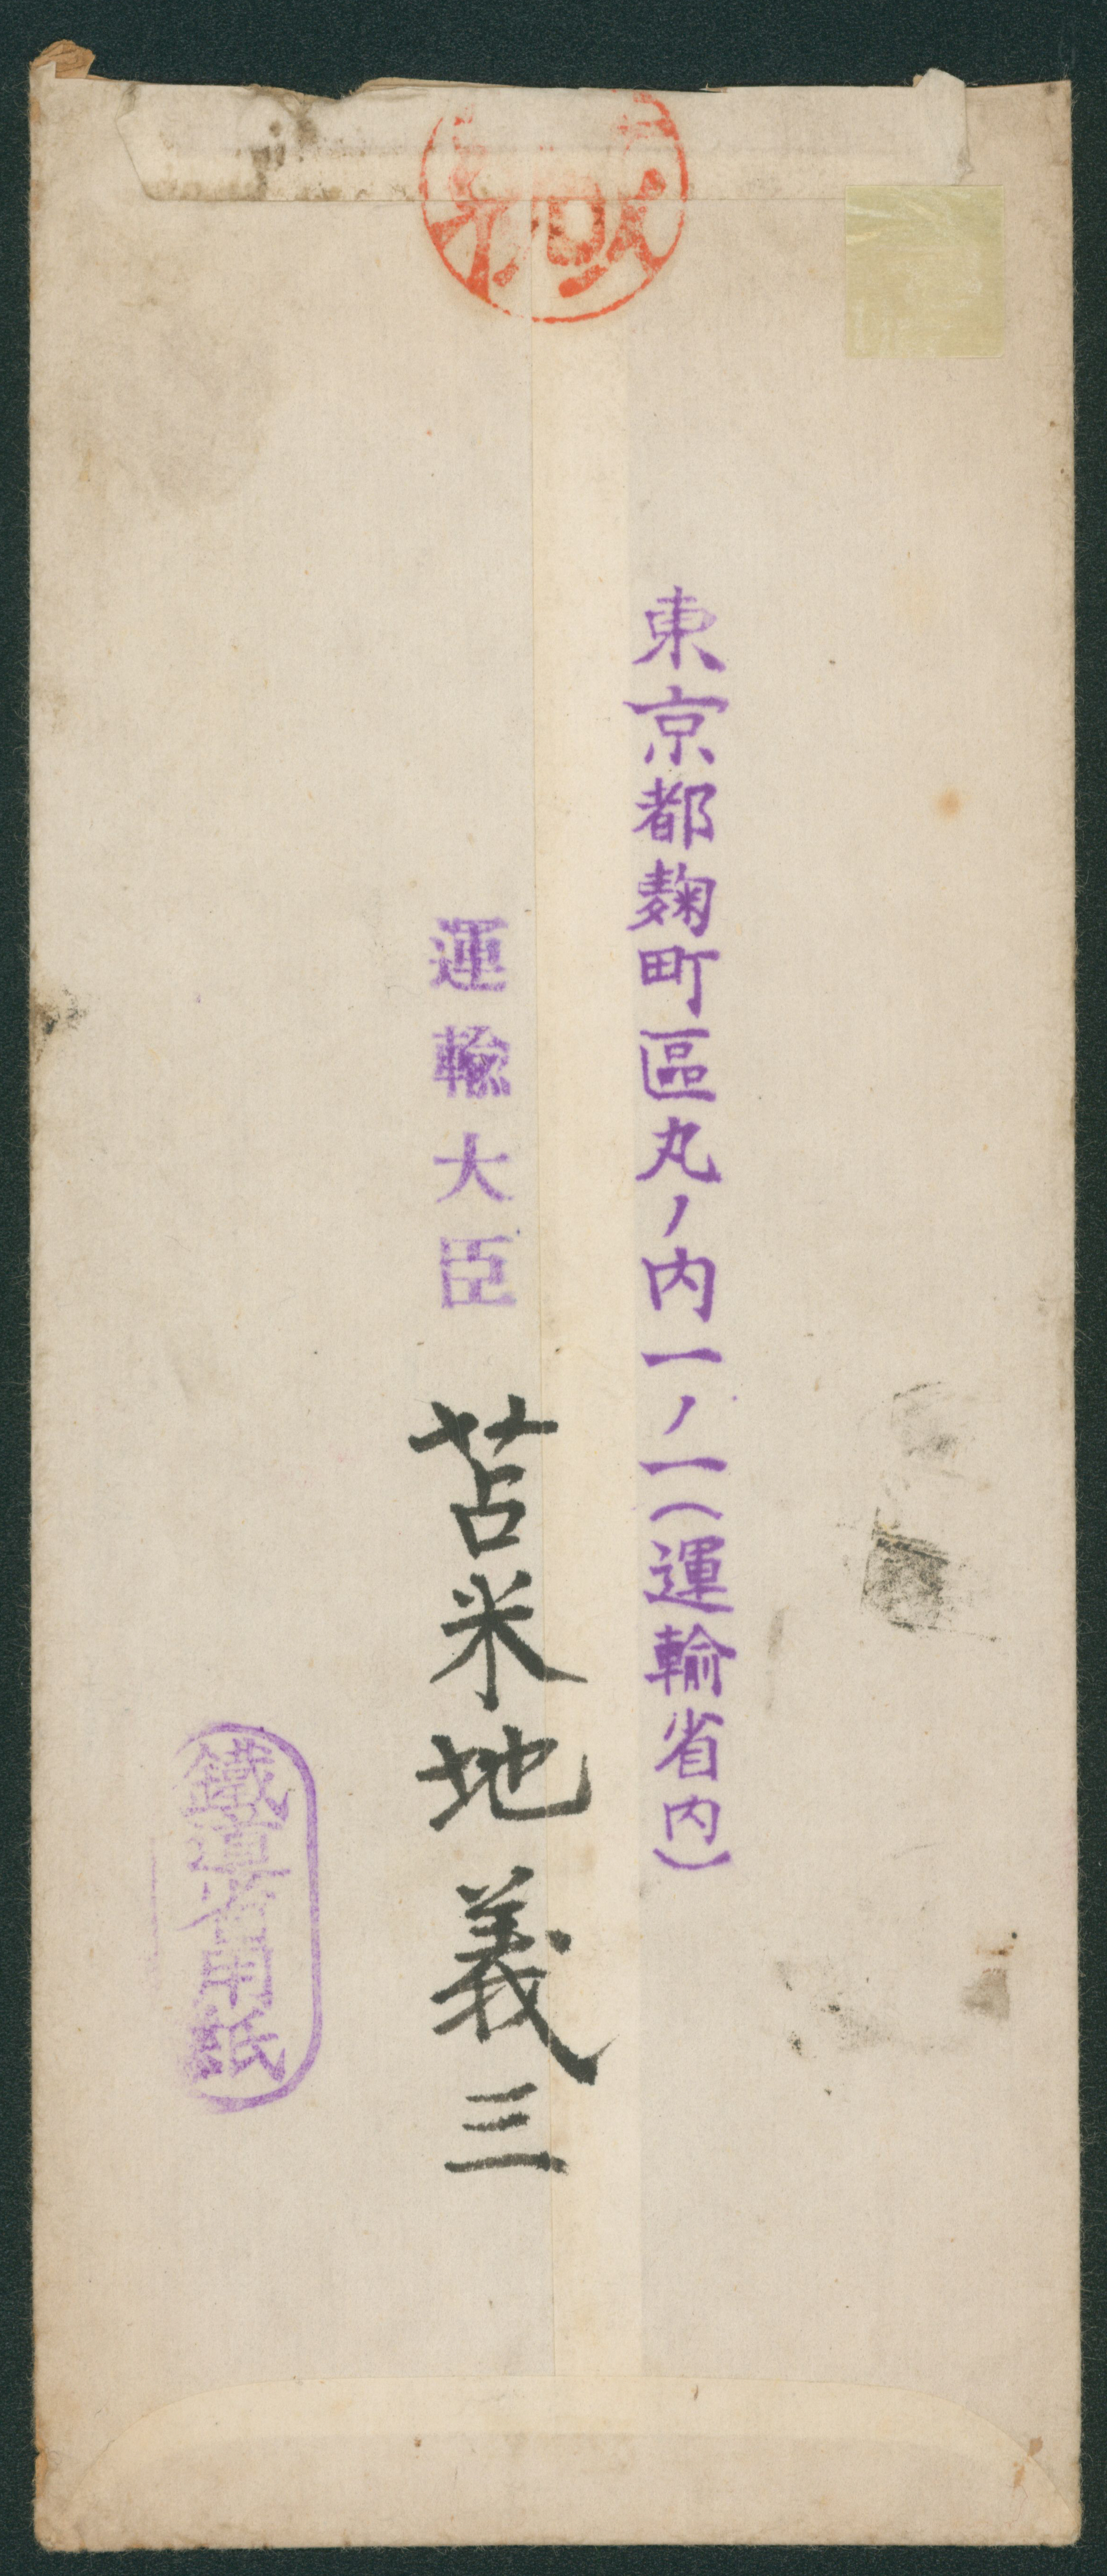 東京都麹町區丸ノ内一ノ一(運輸省内)
運輸大臣 苫米地義三
鐵道省用紙